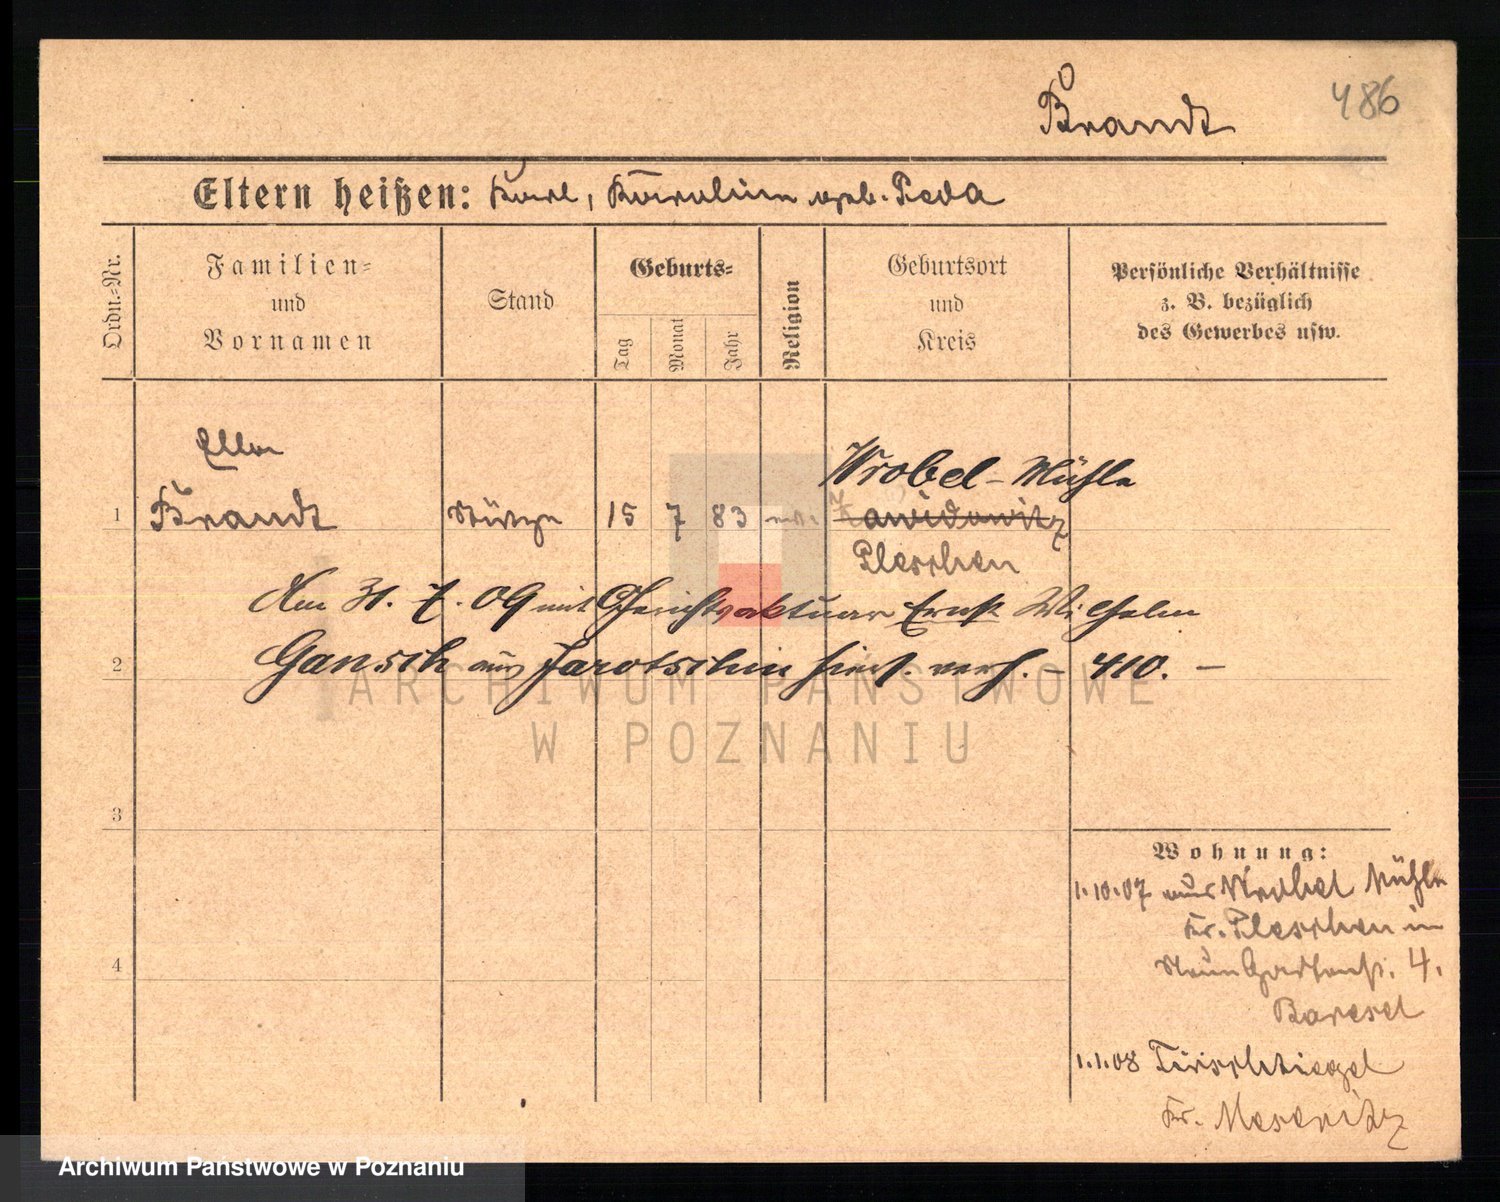 486
Brandt
Eltern heißen: Karl, Karoline geb. Peda
Ordn.-Nr.
Familien-
und
Vornamen
Stand
Geburts-
Tag
Monat
Jahr
Religion
Geburtsort
und
Kreis
Persönliche Verhältnisse
z. B. bezüglich
des Gewerbes usw.
Ella
Wrobel-Mühle
1 Brandt Stütze 15 7 83 ev.
Pleschen
Am 31. 7. 09 mit Gerichtsaktuar Ernst Wilhelm
2 Gansch aus Jarotschin hier verh. - 410. -
3
Wohnung:
1.10.07 aus Wrobel Mühle
Kr. Pleschen in
4
Neue Gartenstr. 4.
1.1.08 Tirschtiegel
Kr. Meseritz
ARCHIWUM PAŃSTWOWE
W POZNANIU
Archiwum Państwowe w Poznaniu